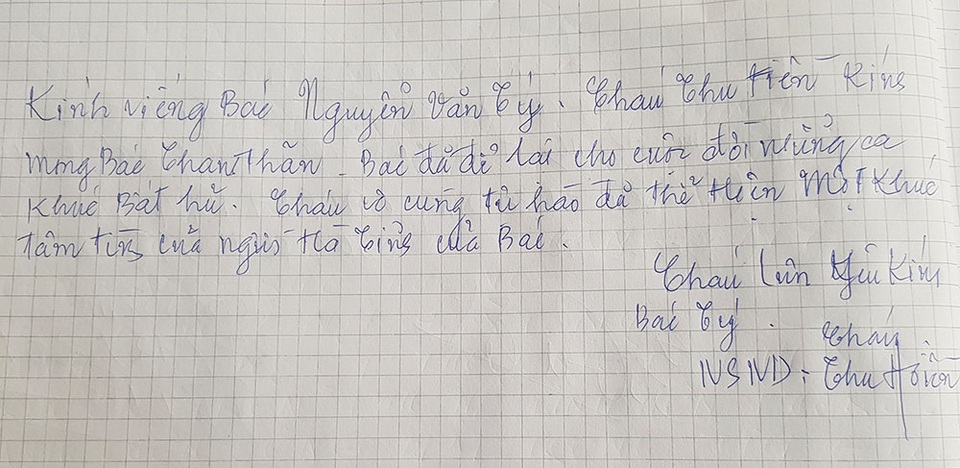 Kính viếng Bác Nguyễn Văn Tý. Cháu Thu Hiền Kính
mong Bác Thanh Thản. Bác đã để lại cho cuộc đời những ca
khúc Bất hủ. Cháu vô cùng tự hào đã thể Hiện Một Khúc
tâm tình của người Hà Tĩnh của Bác.
Cháu luôn yêu Kính
Bác Tý.
Cháu
NSND: Thu Hiền